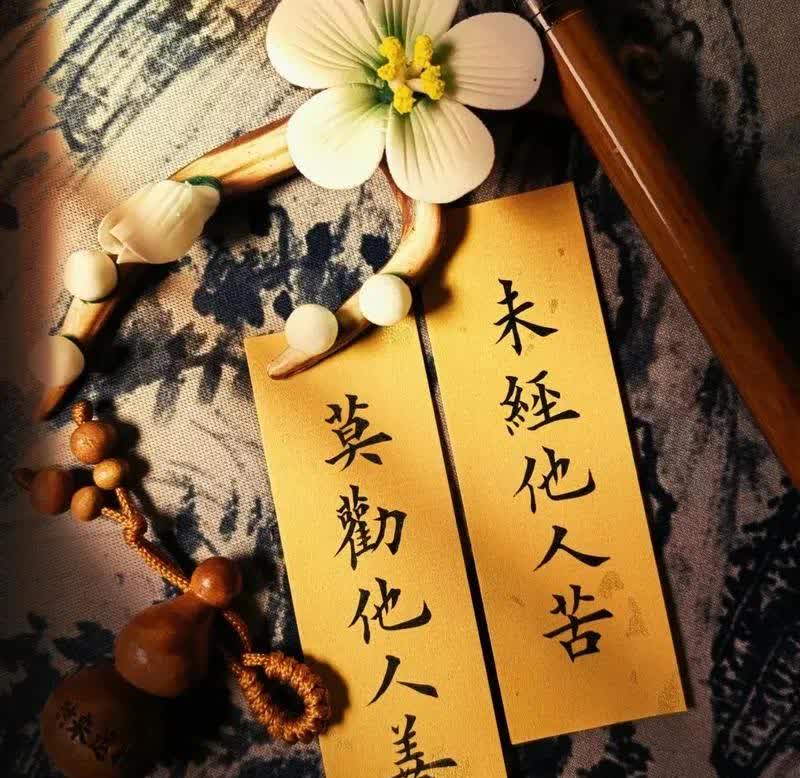 未經他人苦
莫勸他人善